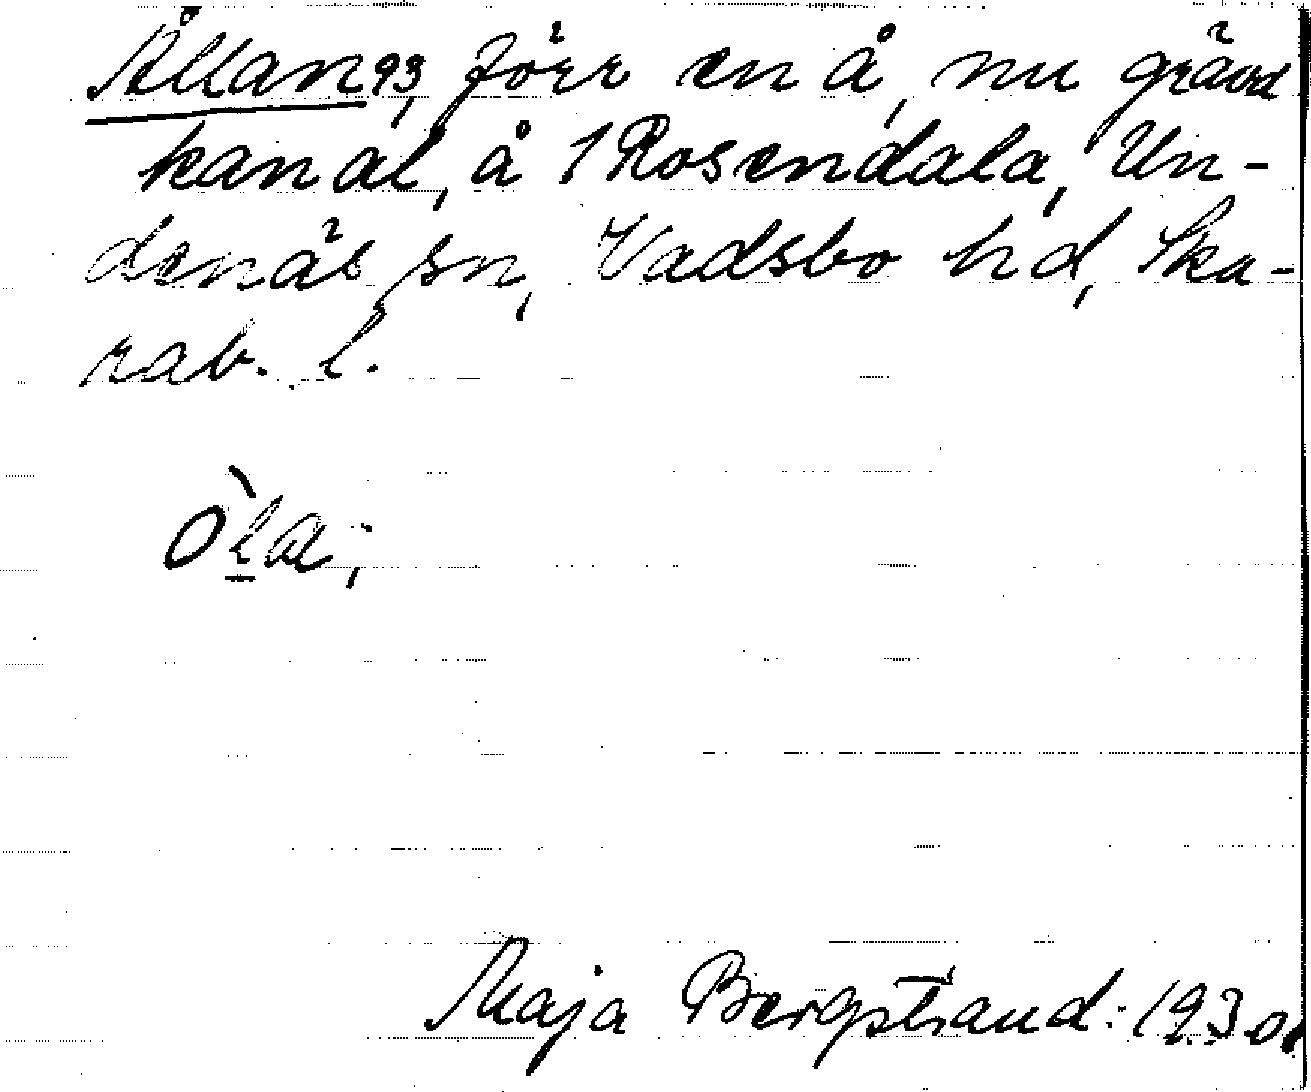 Ållan 93, förr en å, nu grävd
kanal, å 1 Rosendala, Un-
denäs sn, Vadsbo hd, Ska-
rab. l.
Maja Bergstrand: 1930.